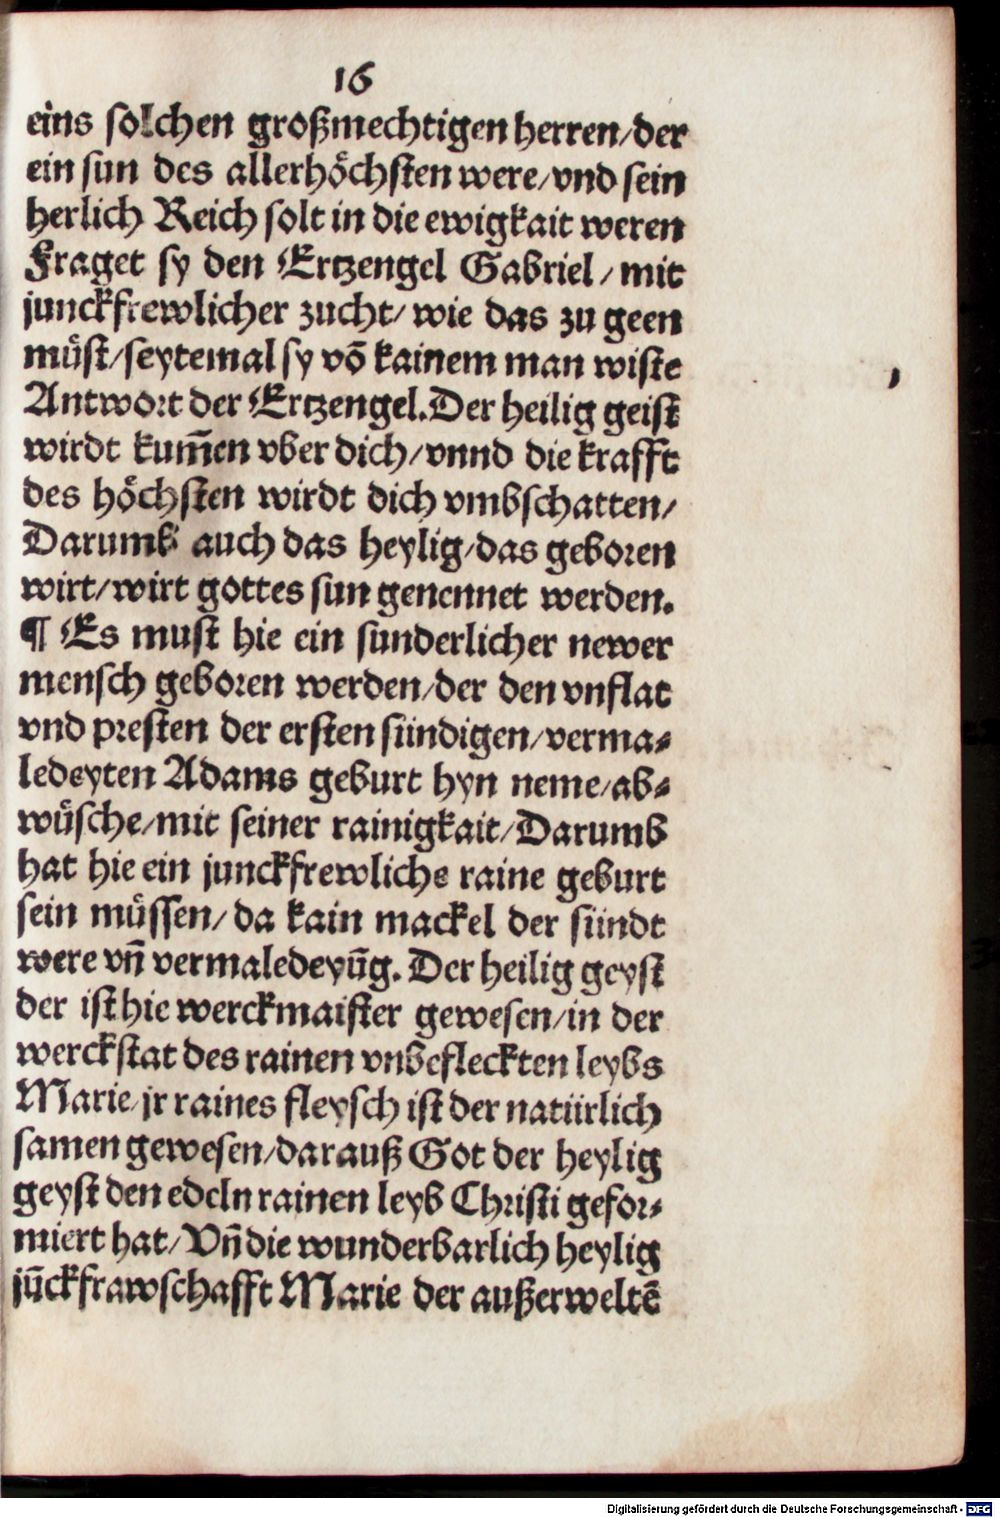 16
eins solchen großmechtigen herren/der
ein sun des allerhöchsten were/vnd sein
herlich Reich solt in die ewigkait weren
Fraget sy den Ertzengel Gabriel/mit
junckfrewlicher zucht/wie das zu geen
müst/seytemal sy võ kainem man wiste
Antwort der Ertzengel.Der heilig geist
wirdt kum̃en vber dich/vnnd die krafft
des höchsten wirdt dich vmbschatten/
Darumb auch das heylig/das geboren
wirt/wirt gottes sun genennet werden.
¶ Es must hie ein sunderlicher newer
mensch geboren werden/der den vnflat
vnd presten der ersten sündigen/verma⸗
ledeyten Adams geburt hyn neme/ab⸗
wüsche/mit seiner rainigkait/Darumb
hat hie ein junckfrewliche raine geburt
sein müssen/da kain mackel der sündt
were vñ vermaledeyũg. Der heilig geyst
der ist hie werckmaister gewesen/in der
werckstat des rainen vnbefleckten leybs
Marie/jr raines fleysch ist der natürlich
samen gewesen/darauß Got der heylig
geyst den edeln rainen leyb Christi gefor⸗
miert hat/Vñ die wunderbarlich heylig
jũckfrawschafft Marie der außerweltẽ
Digitalisierung gefördert durch die Deutsche Forschungsgemeinschaft - DFG